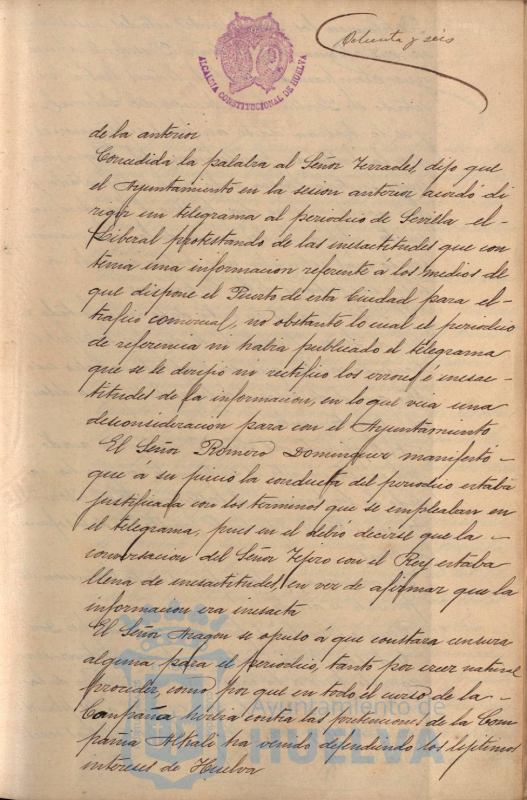 Ochenta y seis
ALCALDIA CONSTITUCIONAL DE HUELVA
de la anterior
Concedida la palabra al Señor Terrades, dijo que
el Ayuntamiento en la sesion anterior acordó di
rigir un telegrama al periodico de Sevilla el
Liberal protestando de las inesactitudes que con
tenia una informacion referente á los medios de
que dispone el Puerto de esta Ciudad para el
trafico comercial, no obstante lo cual el periodico
de referencia ni habia publicado el telegrama
que se le dirijió ni rectifico los errores é inesac-
titudes de la informacion, en lo que veia una
desconsideracion para con el Ayuntamiento
El Señor Romero Dominguez manifestó
que á su juicio la conducta del periodico estaba
justificada con los terminos que se empleaban en
el telegrama, pues en el debió decirse que la
conversacion del Señor Tejero con el Rey estaba
llena de inesactitudes, en vez de afirmar que la
informacion era inesacta
El Señor Aragon se opuso á que constara censura
alguna para el periodico, tanto por creer natural
proceder, como por que en todo el curso de la
Campaña contra las pretenciones de la Com
pañia Alkali ha venido defendiendo los lejitimos
intereses de Huelva
Ayuntamiento de
HUELVA